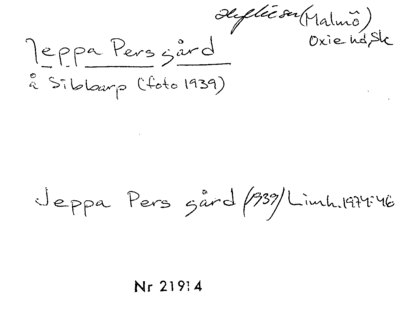 (Malmö)
Oxie hd, Sk
Jeppa Pers gård
å Sibbarp (foto 1939)
Jeppa Pers gård (1939) Limh. 1974:46
Nr 21914